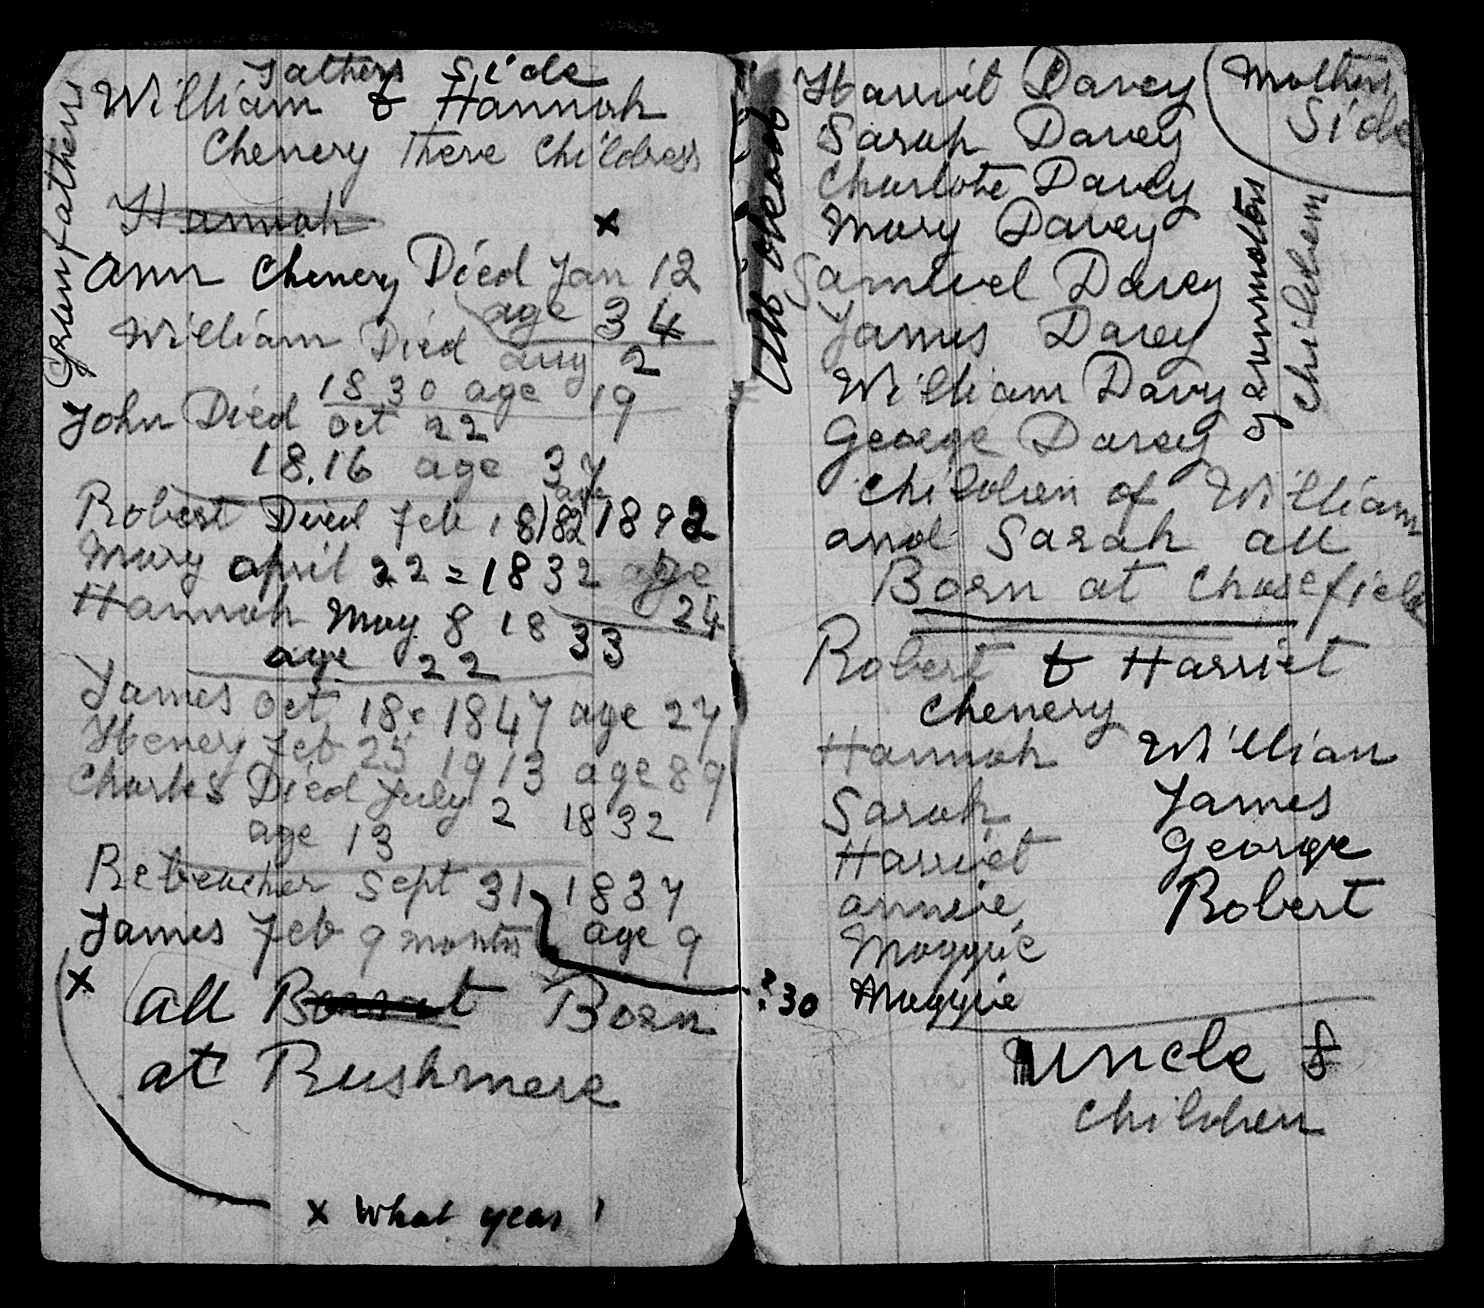 Fathers Side
William & Hannah
Chenery There Childress
Granfathers
Hannah
x
Ann Chenery Died Jan 12
age 34
William Died aug 2
1830 age 19
John Died oct 22
18.16 age 37
age
Robert Died Feb 18)82 1892
Mary april 22 = 1832 age
24
Hannah May 8 1833
age 22
James oct 18 = 1847 age 27
Henery Feb 25 1913 age 89
Charles Died July 2 1832
age 13
Rebeucher Sept 31 1837
James Feb 9 months age 9
x
all Born at Born
at Rushmere
x What year
All dead
Harrit Davey
Mothers Side
Sarah Davey
Charlote Davey
Mary Davey
Samuel Davey
James Davey
William Davy
George Davey
granmothers
Children
Children of William
and Sarah all
Born at Chosefield
Robert & Harriet
Chenery
Hannah William
Sarah James
Harriet George
annie Robert
Maggie
?30 Maggie
uncle &
Children